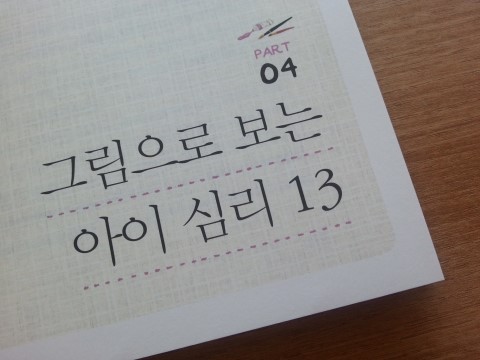 PART
04
그림으로 보는
아이 심리 13